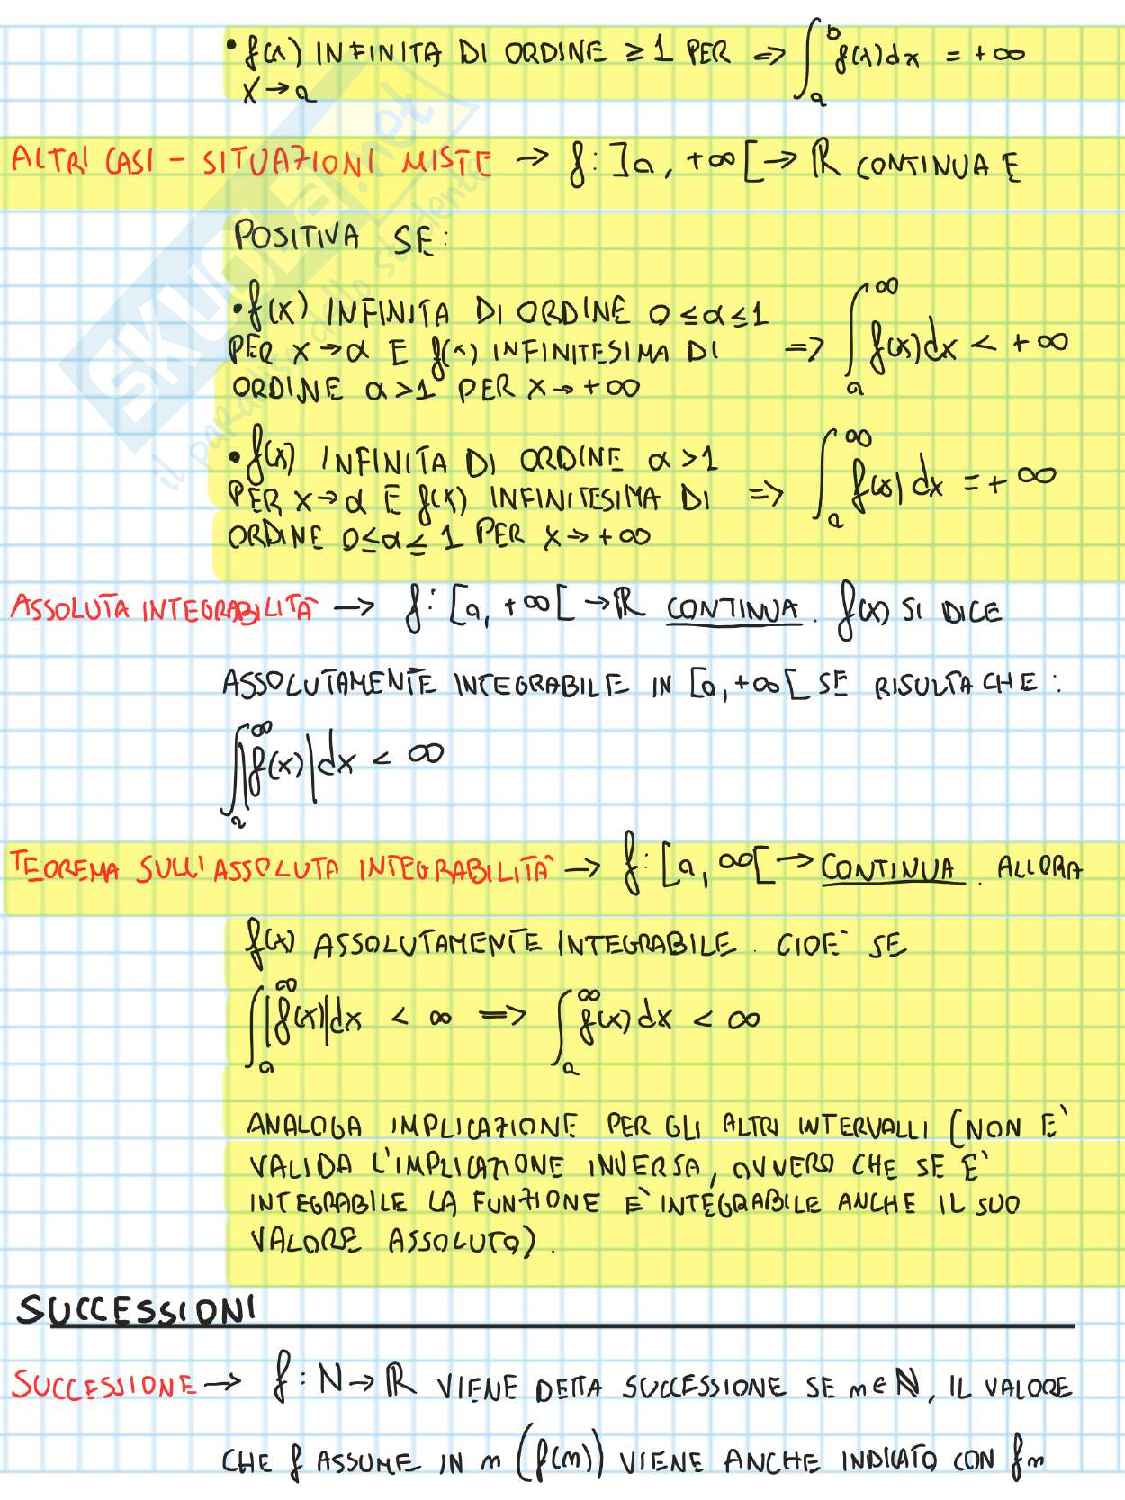 • f(x) INFINITA DI ORDINE ≥ 1 PER => ∫_a^b f(x)dx = +∞
X → a
ALTRI CASI - SITUAZIONI MISTE → f: ]a, +∞[ → ℝ CONTINUA E
POSITIVA SE:
• f(x) INFINITA DI ORDINE 0 ≤ α ≤ 1
PER X → α E f(x) INFINITESIMA DI => ∫_a^∞ f(x)dx < +∞
ORDINE α > 1 PER X → +∞
• f(x) INFINITA DI ORDINE α > 1
PER X → α E f(x) INFINITESIMA DI => ∫_a^∞ f(x)dx = +∞
ORDINE 0 ≤ α ≤ 1 PER X → +∞
ASSOLUTA INTEGRABILITÀ → f: [a, +∞[ → ℝ CONTINUA. f(x) SI DICE
ASSOLUTAMENTE INTEGRABILE IN [a, +∞[ SE RISULTA CHE:
∫_a^∞ |f(x)|dx < ∞
TEOREMA SULL'ASSOLUTA INTEGRABILITÀ → f: [a, ∞[ → CONTINUA. ALLORA
f(x) ASSOLUTAMENTE INTEGRABILE. CIOÈ SE
∫_a^∞ |f(x)|dx < ∞ => ∫_a^∞ f(x)dx < ∞
ANALOGA IMPLICAZIONE PER GLI ALTRI INTERVALLI (NON È
VALIDA L'IMPLICAZIONE INVERSA, OVVERO CHE SE È
INTEGRABILE LA FUNZIONE È INTEGRABILE ANCHE IL SUO
VALORE ASSOLUTO).
SUCCESSIONI
SUCCESSIONE → f: N → ℝ VIENE DETTA SUCCESSIONE SE n ∈ ℕ, IL VALORE
CHE f ASSUME IN n (f(n)) VIENE ANCHE INDICATO CON fn
SKUOLA.net
il paradiso dello studente